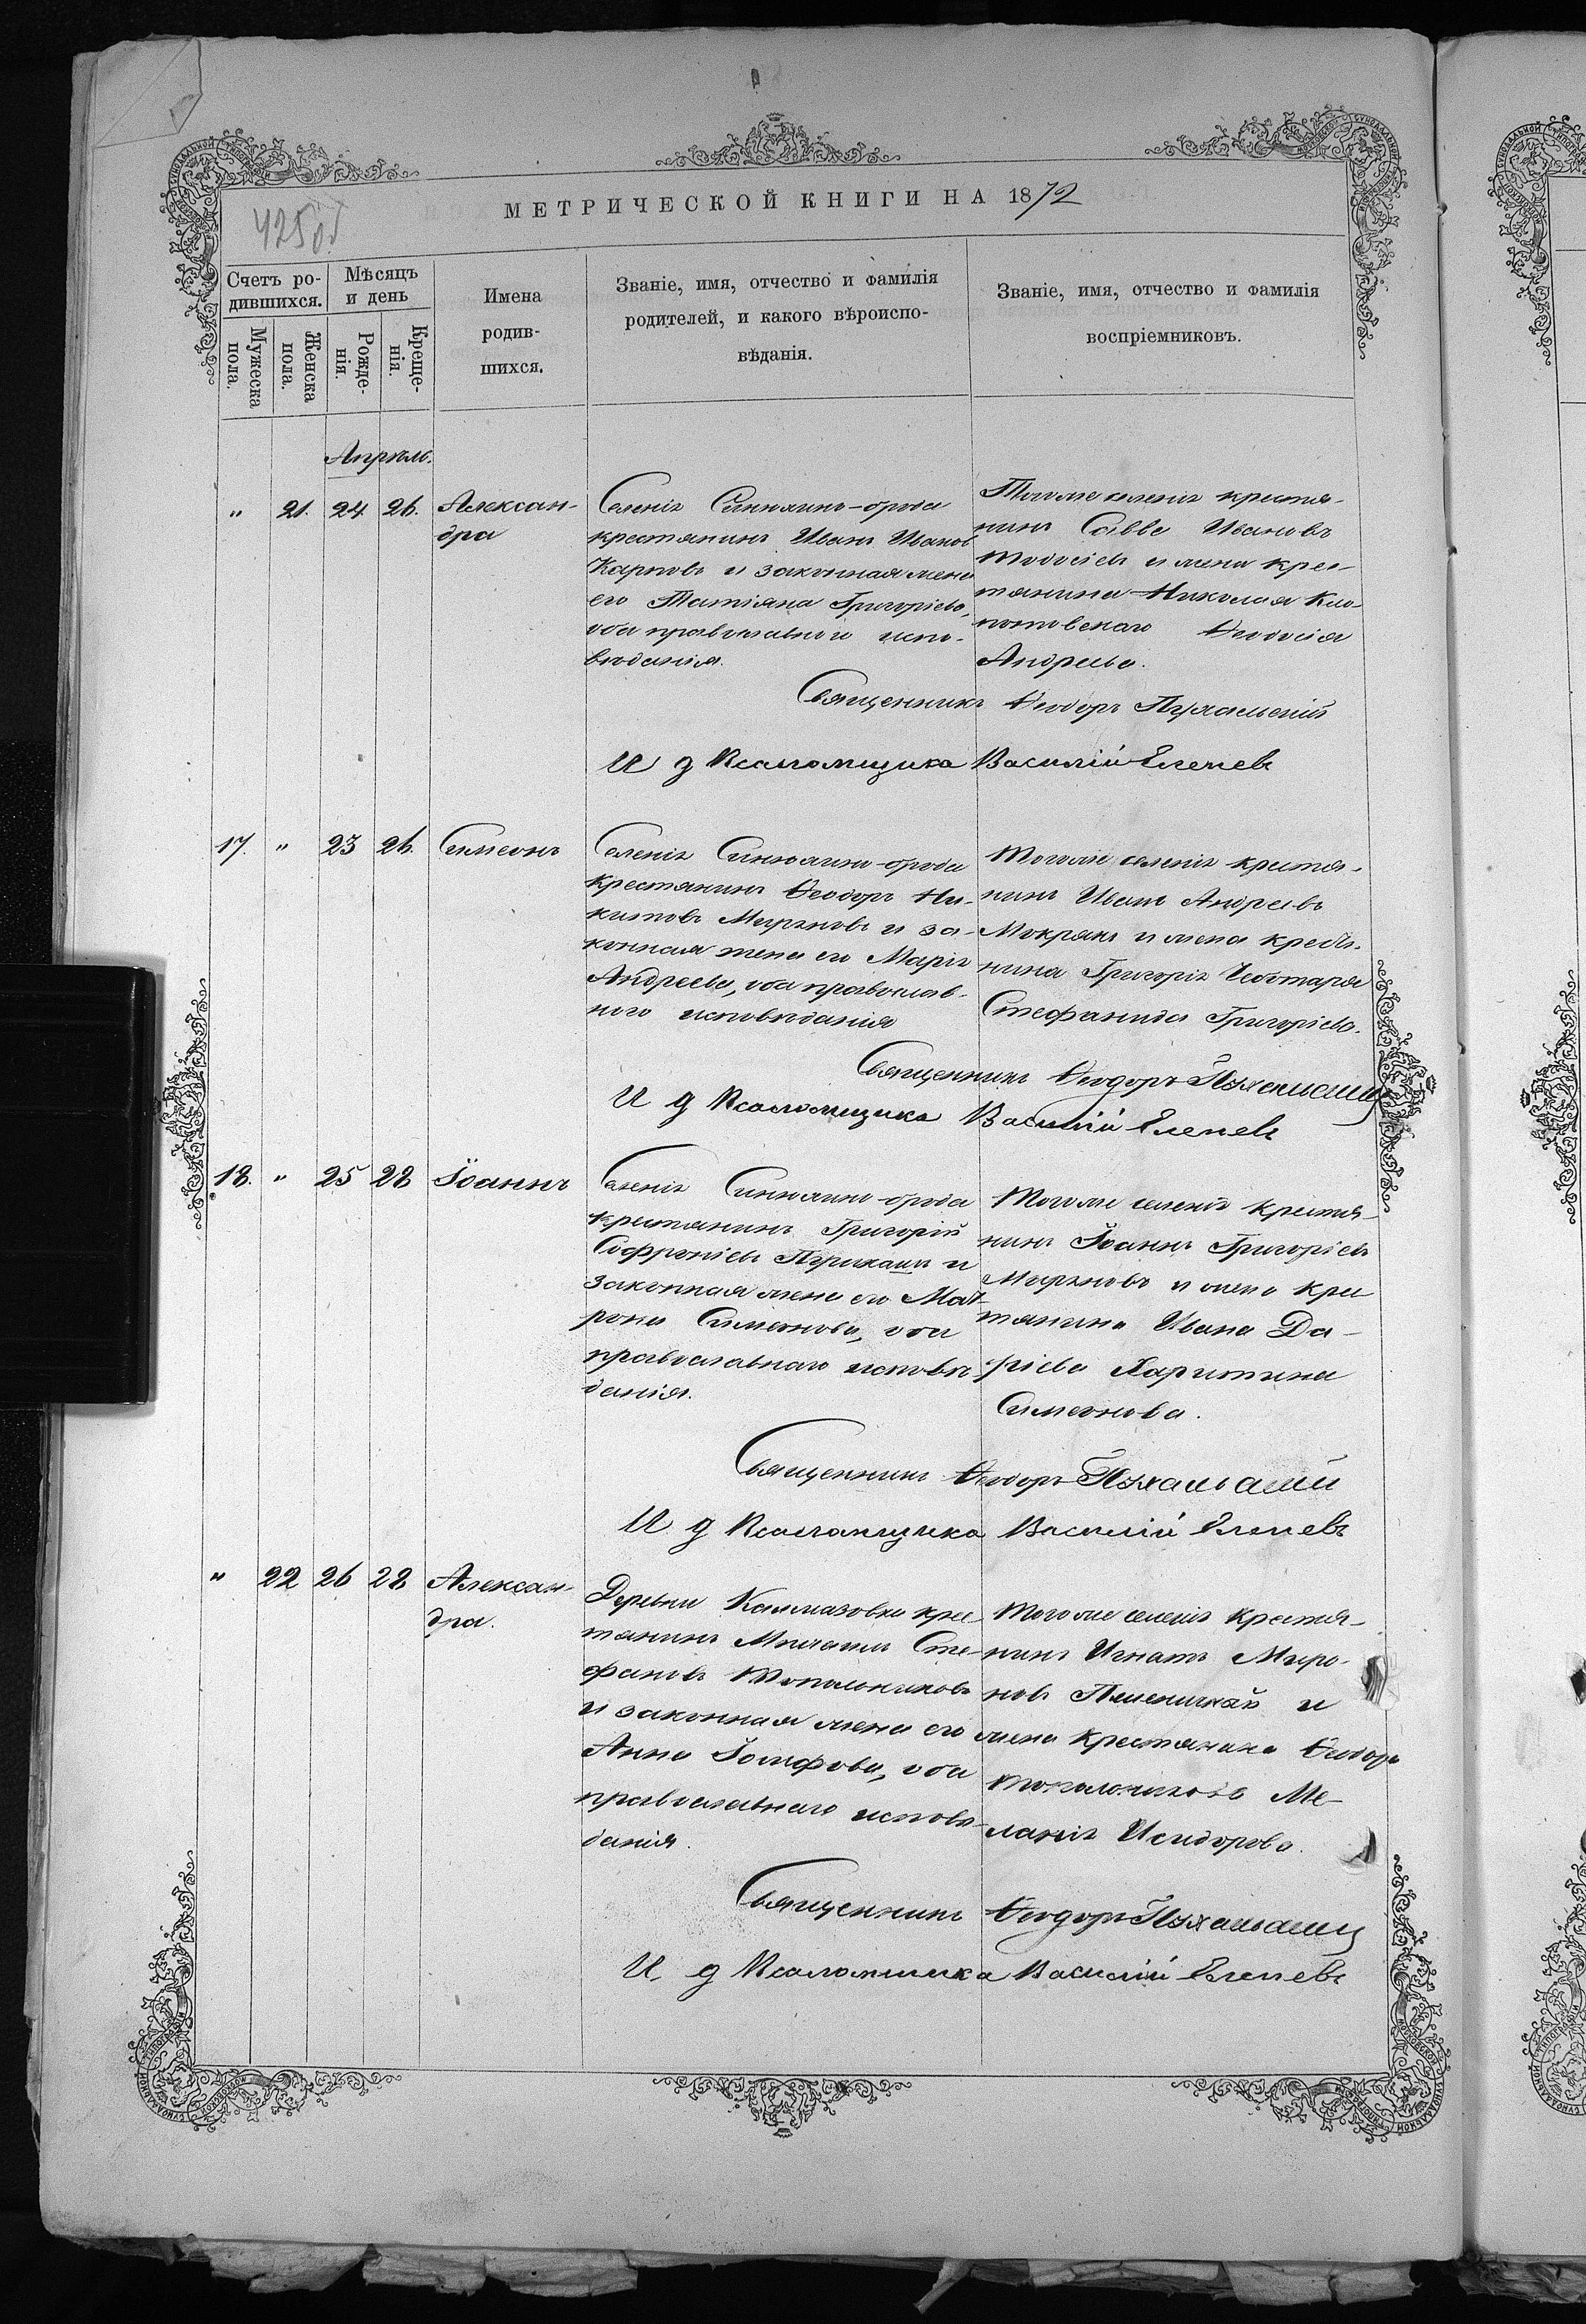 425 об
МЕТРИЧЕСКОЙ КНИГИ НА 1872
Счетъ ро-
дившихся.
Мѣсяцъ
и день
Мужеска
пола.
Женска
пола.
Рожде-
нія.
Креще-
нія.
Имена
родив-
шихся.
Званіе, имя, отчество и фамилія
родителей, и какого вѣроиспо-
вѣданія.
Званіе, имя, отчество и фамилія
воспріемниковъ.
Апрѣль.
" 21. 24 26. Алексан-
дра
Селенія Синюхинъ-брода
крестянинъ Иванъ Иванов
Карповъ и законная жена
его Татіяна Григоріева,
оба православнаго испо-
вѣданія.
Тогоже селенія крестя-
нинъ Савва Ивановъ
и жена крес-
тянина Николая Кло-
потовскаго Ѳеодосія
Андреева.
Священникъ Ѳеодоръ Пухальскій
И д Псаломщика Василій Еленевъ
17. " 23 26. Симеонъ
Селенія Синюхинъ-брода
крестянинъ Ѳеодоръ Ни-
китовъ Мирновъ и за-
конная жена его Марія
Андреева, оба православ-
ного исповѣданія
Тогоже селенія крестя-
нинъ Иванъ Андреевъ
Мокрякъ и жена крестя-
нина Григорія Чеботаря
Стефанида Григоріева.
Священникъ Ѳеодоръ Пухальскій
И д Псаломщика Василій Еленевъ
18. " 25 28 Іоаннъ
Селенія Синюхинъ-брода
крестянинъ Григорій
Софроніевъ и
законная жена его Мат-
рона Симеонова, оба
православнаго исповѣ-
данія.
Тогоже селенія крестя-
нинъ Іоаннъ Григоріевъ
Мирновъ и жена крес
тянина Ивана Да-
ріева Харитина
Симеонова.
Священникъ Ѳеодоръ Пухальскій
И д Псаломщика Василій Еленевъ
" 22 26 28 Алексан-
дра.
Деревни Калмазовки крес-
тянинъ Михаилъ Сте-
фановъ Топольниковъ
и законная жена его
Анна Іосифова, оба
православнаго исповѣ-
данія.
Тогоже селенія крестя-
нинъ Игнатъ Миро-
новъ Пшеничный и
жена крестянина Ѳеодора
Топольникова Ме-
ланія Исидорова.
Священникъ Ѳеодоръ Пухальскій
И. д Псаломщика Василій Еленевъ